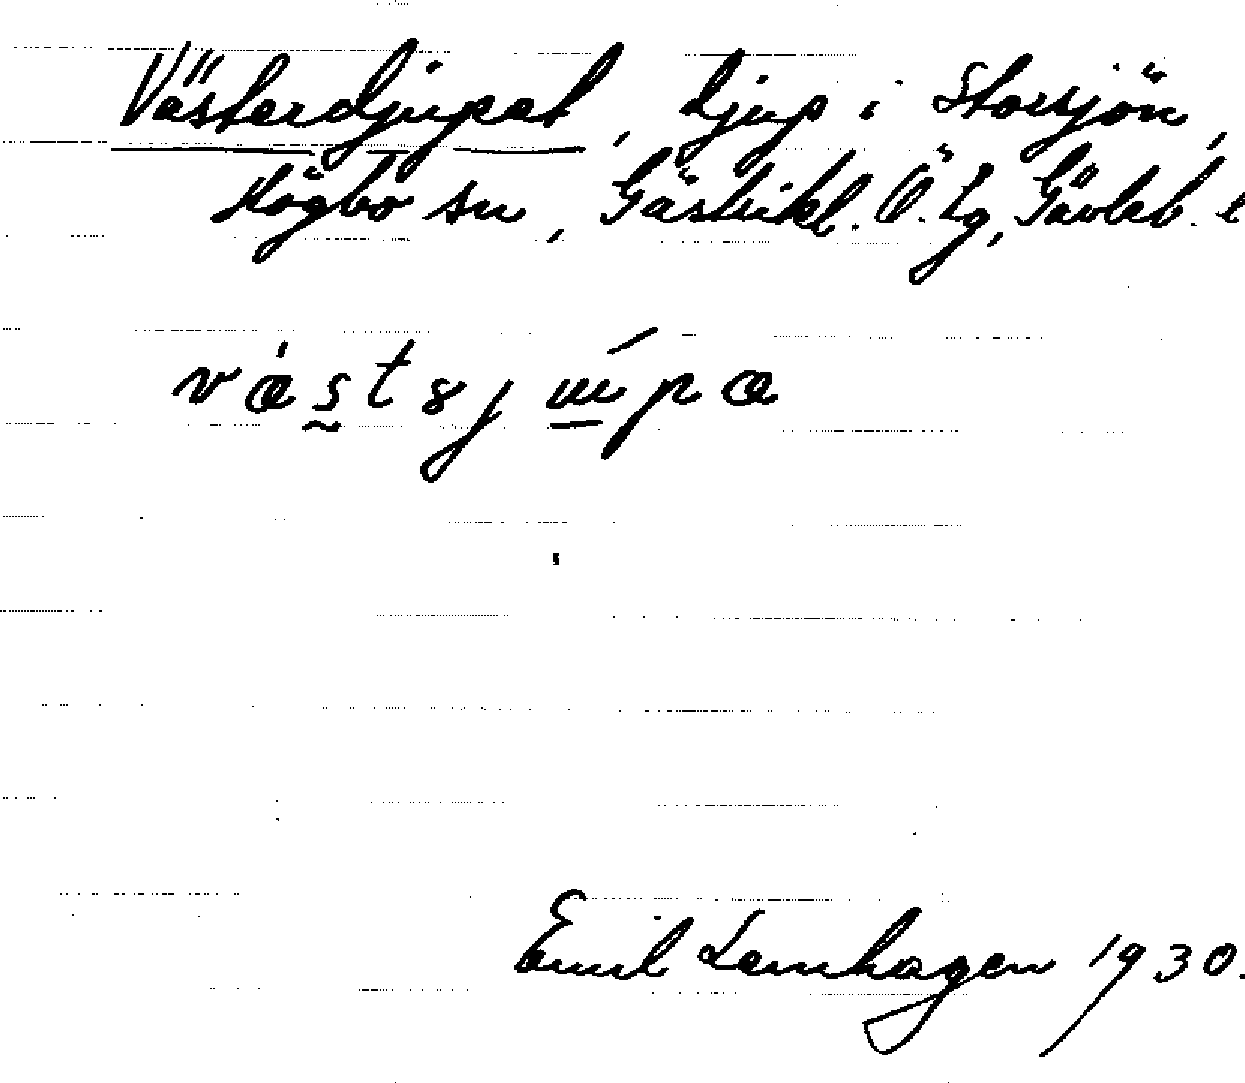 Västerdjupet, djup i Storsjön,
Högbo sn, Gästrikl. Ö. tg, Gävleb. l
Emil Lemhagen 1930.